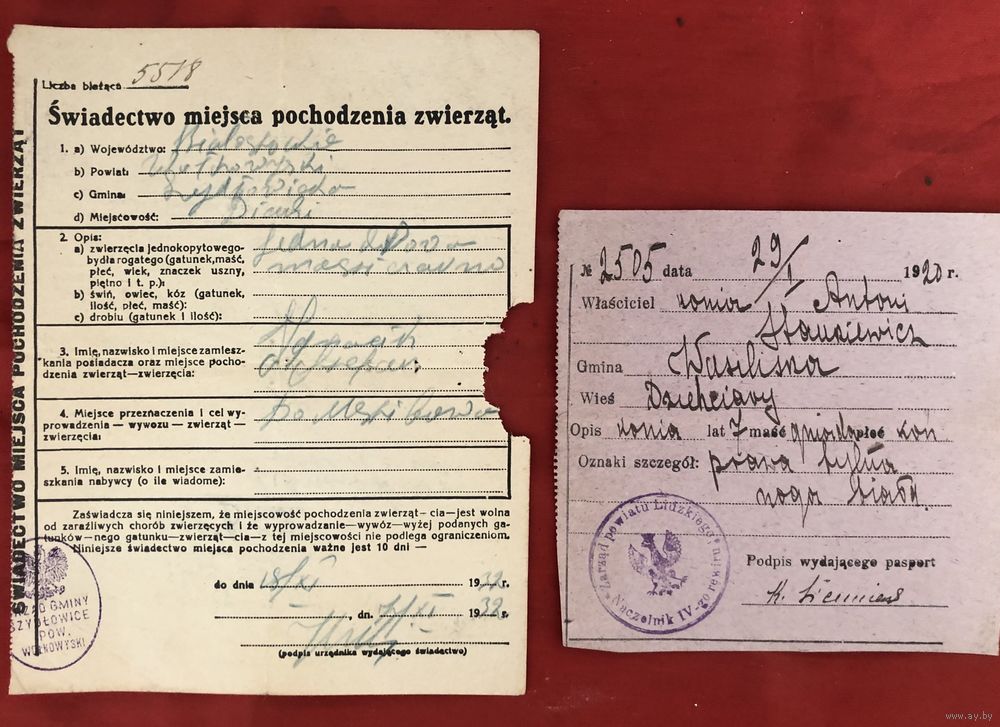 ŚWIADECTWO MIEJSCA POCHODZENIA ZWIERZĄT
Liczba bieżąca 5518
Świadectwo miejsca pochodzenia zwierząt.
1. a) Województwo: Białostockie
b) Powiat: Wołkowyski
c) Gmina: Szydłowicka
d) Miejscowość:
2. Opis:
a) zwierzęcia jednokopytowego-
bydła rogatego (gatunek, maść,
płeć, wiek, znaczek uszny,
piętno i t. p.):
Jedna krowa
maści czarno
b) świń, owiec, kóz (gatunek,
ilość, płeć, maść):
c) drobiu (gatunek i ilość):
3. Imię, nazwisko i miejsce zamiesz-
kania posiadacza oraz miejsce pocho-
dzenia zwierząt—zwierzęcia:
4. Miejsce przeznaczenia i cel wy-
prowadzenia — wywozu — zwierząt —
zwierzęcia:
5. Imię, nazwisko i miejsce zamie-
szkania nabywcy (o ile wiadome):
Zaświadcza się niniejszem, że miejscowość pochodzenia zwierząt- cia—jest wolna
od zaraźliwych chorób zwierzęcych i że wyprowadzanie—wywóz—wyżej podanych ga-
tunków—nego gatunku—zwierząt—cia—z tej miejscowości nie podlega ograniczeniom.
Niniejsze świadectwo miejsca pochodzenia ważne jest 10 dni —
do dnia 18/XI 1932 r.
, dn. XI 1932 r.
(podpis urzędnika wydającego świadectwo)
GMINY
SZYDŁOWICE
POW.
WOŁKOWYSKI
№ 2505 data 29/I 1920 r.
Właściciel konia Antoni
Stankiewicz
Gmina Wasiliszka
Wieś
Opis konia lat 7 maść gniada płeć koń
Oznaki szczegól: prawa tylna
noga biała
Zarząd powiatu Lidzkiego
Naczelnik IV-go rewiru
Podpis wydającego pasport
www.ay.by